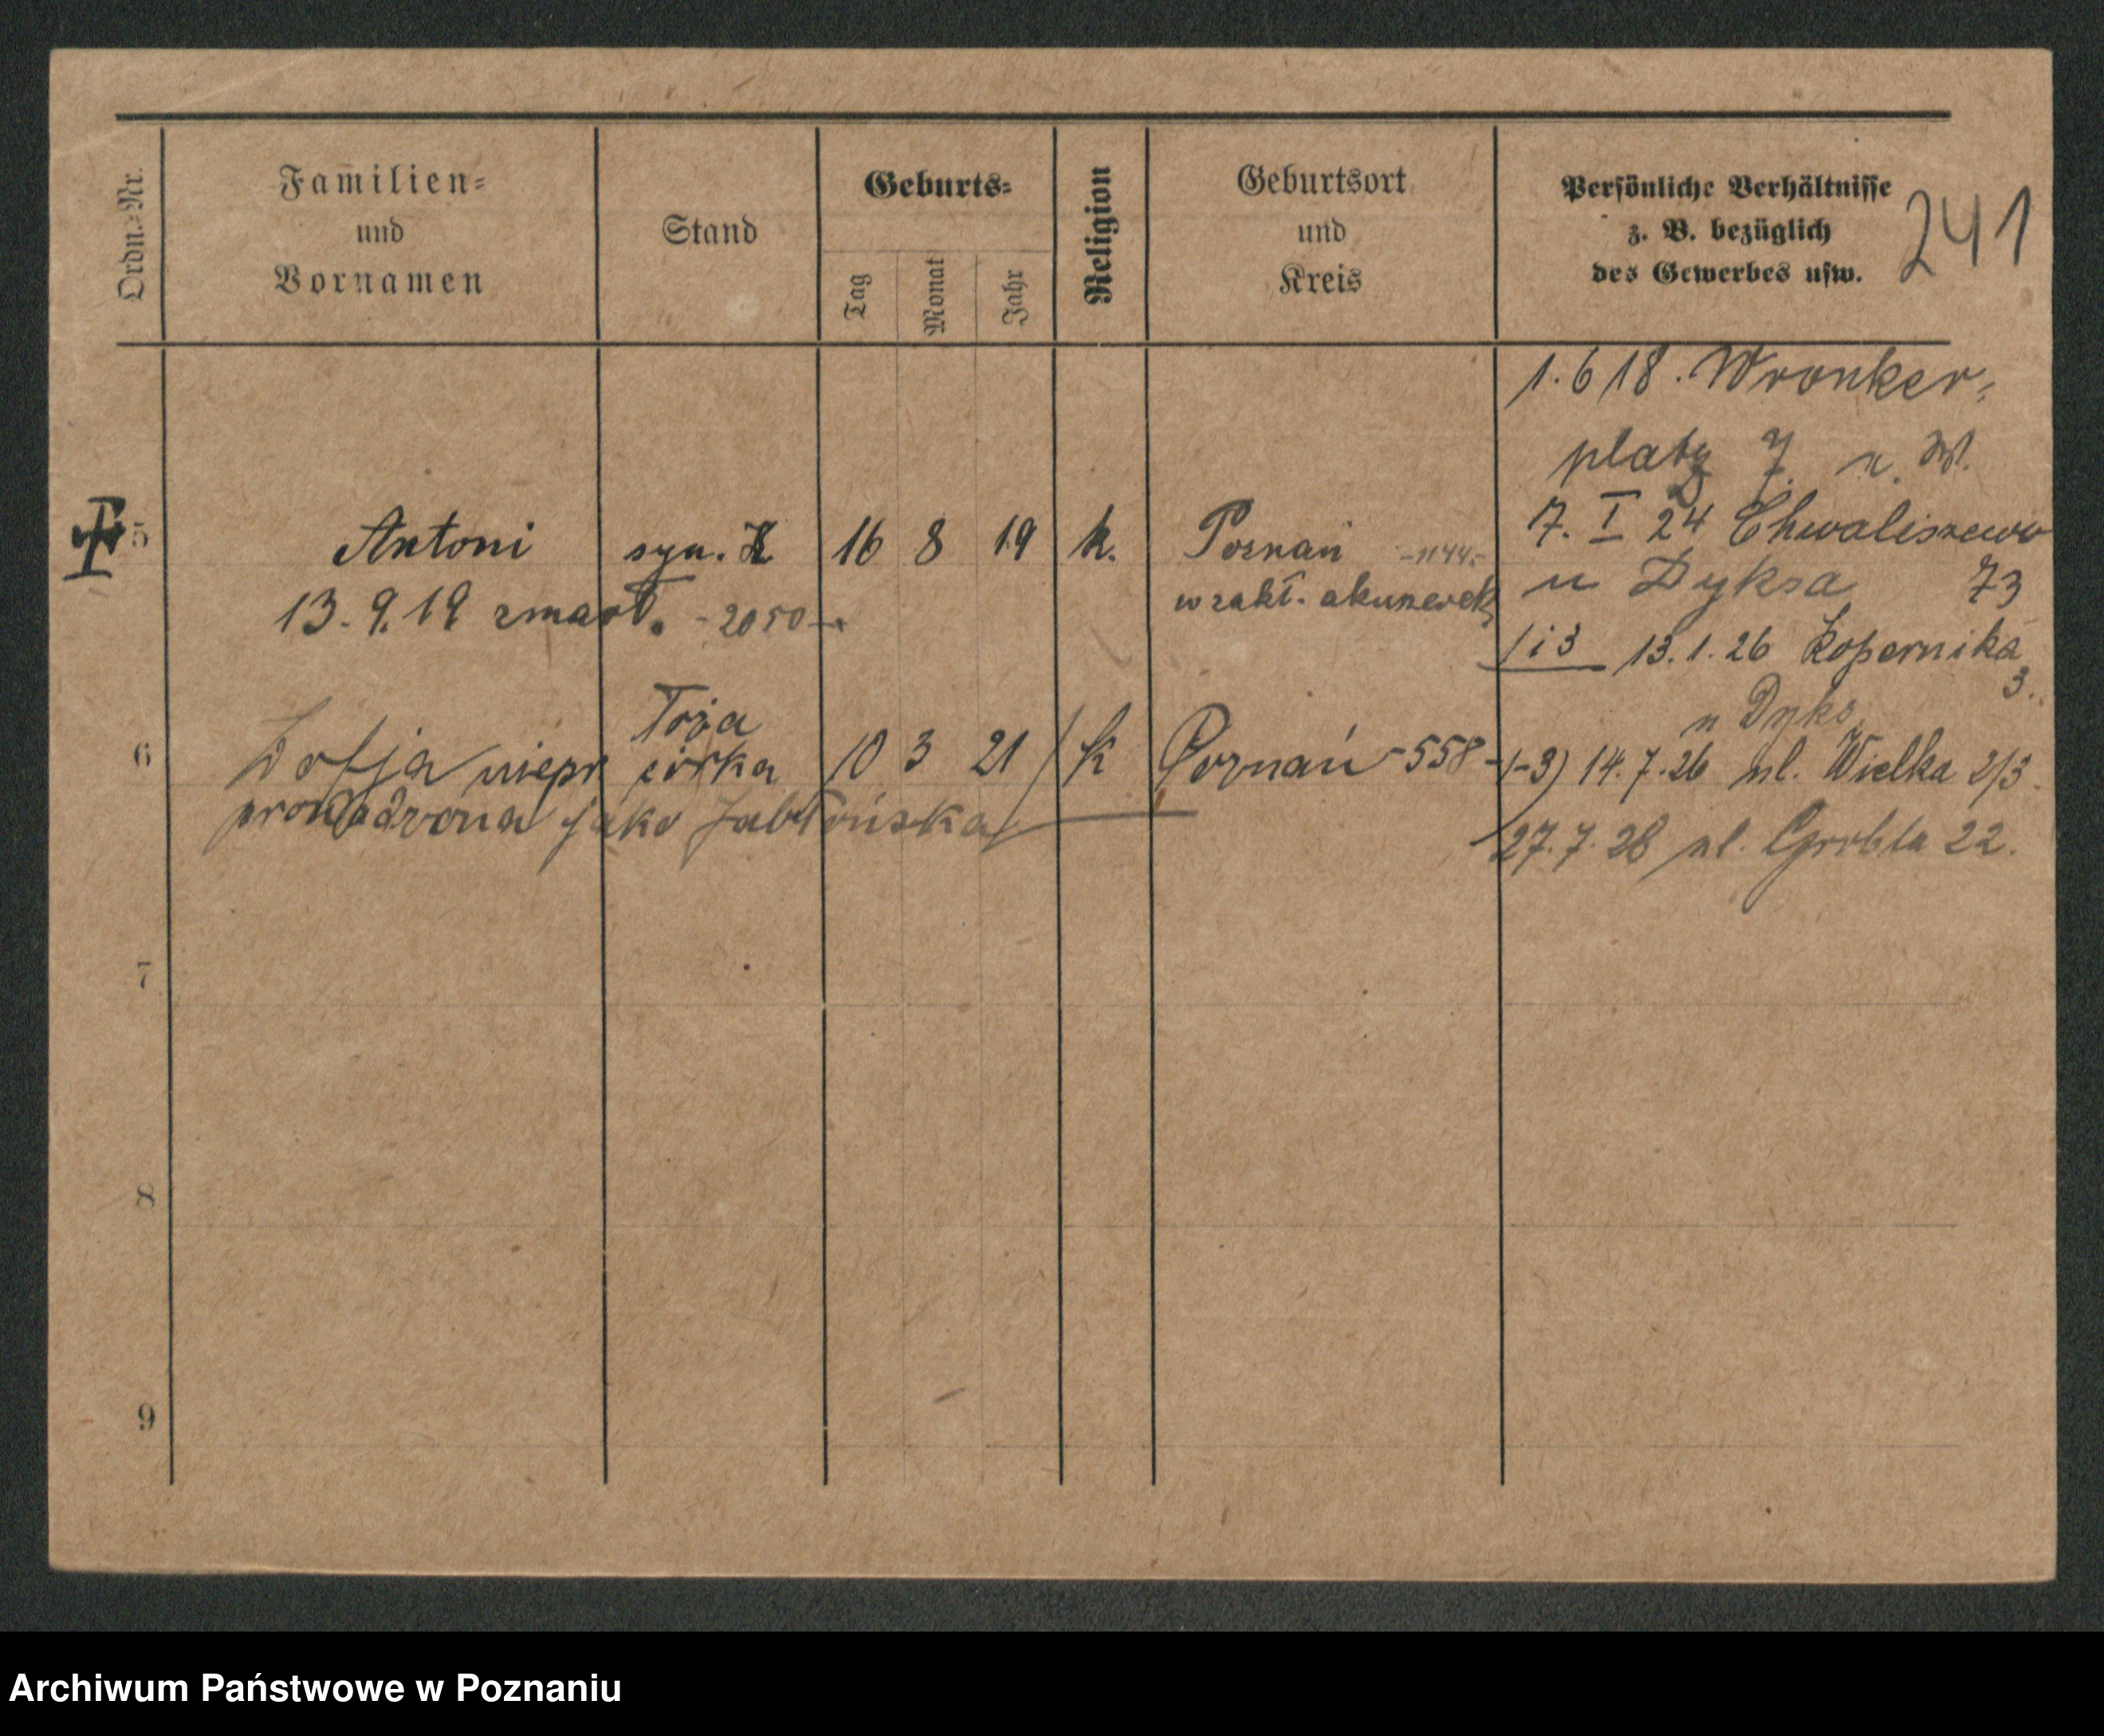 Ordn.-Nr.
Familien-
und
Vornamen
Stand
Geburts-
Tag
Monat
Jahr
Religion
Geburtsort
und
Kreis
Persönliche Verhältnisse
z. B. bezüglich
des Gewerbes usw.
241
1.6 18. Wronker-
platz 7. n. W.
5
Antoni syn. 16 8 19 k. Poznań -1144-
13.9.19 zmarł. -2050-
w zakł. akuszerek
17. I 24 Chwaliszewo
u Dyksa 73
1 i 3 13.1.26 Kopernika
3.
u Dyks
6
Toża
Zofja niepr córka 10 3 21 k Poznań -558-
prowadzona jako Jabłońska
1-3) 14.7.26 ul. Wielka 2/3.
27.7.28 ul. Grobla 22.
7
8
9
Archiwum Państwowe w Poznaniu